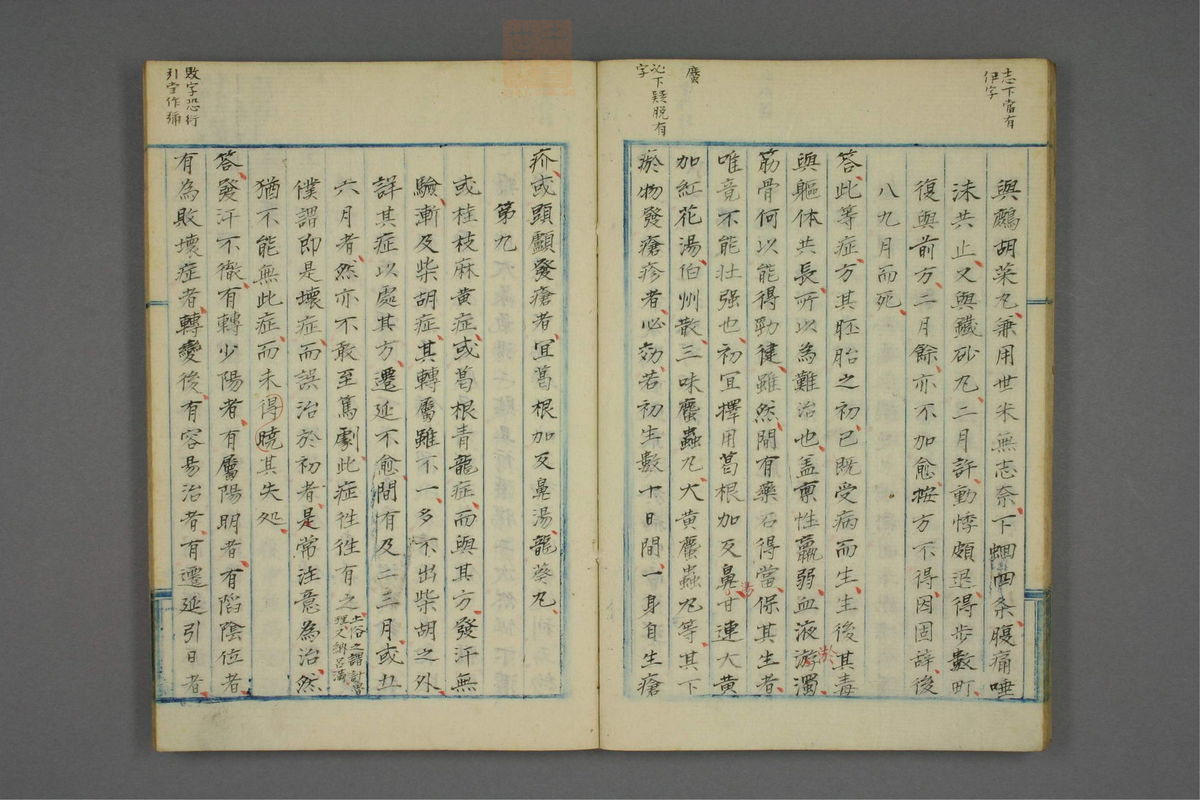 志下當有
伊字
必下疑脱有
字
與鷓胡菜丸、兼用世米無志奈、下蛔四条、腹痛唾
沫共止、又與礞砂丸二月許、動悸頗退、得步數町、
復與前方、二月餘、亦不加愈、按方不得、因固辞、後
八九月而死、
答、此等症、方其胚胎之初、已既受病而生、生後其毒
與軀体共長、所以為難治也、盖稟性羸弱、血液游濁、
筋骨何以能得勁健、雖然間有藥石得當、保其生者、
唯竟不能壮强也、初宜擇用葛根加反鼻湯甘連大黄
加紅花湯伯州散、三味䗪蟲丸、大黄䗪蟲丸等、其下
瘀物發瘡疹者、必効、若初生數十日間、一身自生瘡
疥、或頭顱發瘡者、宜葛根加反鼻湯龍葵丸、
第九
或桂枝麻黄症、或葛根青龍症、而與其方、發汗無
驗、漸及柴胡症、其轉屬雖不一、多不出柴胡之外、
詳其症、以處其方、遷延不愈、間有及二三月、或五
六月者、然亦不敢至篤劇、此症往往有之
僕謂即是壊症、而誤治於初者、是常注意為治、然
猶不能無此症、而未得曉其失処
答、發汗不徹、有轉少陽者、有屬陽明者、有陷陰位者、
有為敗壊症者、轉變後、有容易治者、有遷延引日者、
敗字恐衍